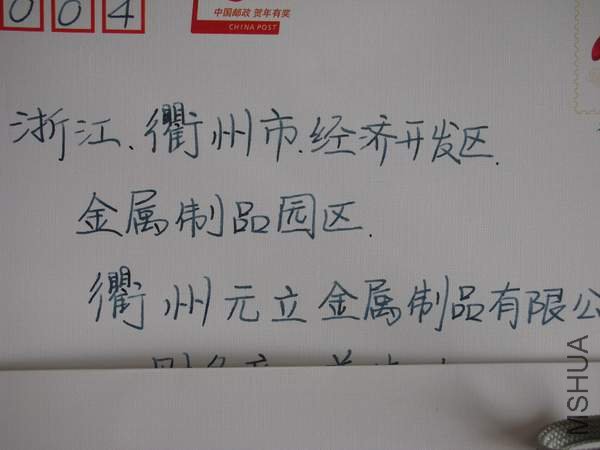 004
中国邮政 贺年有奖
CHINA POST
浙江、衢州市.经济开发区.
金属制品园区.
衢州元立金属制品有限公
MSHUA